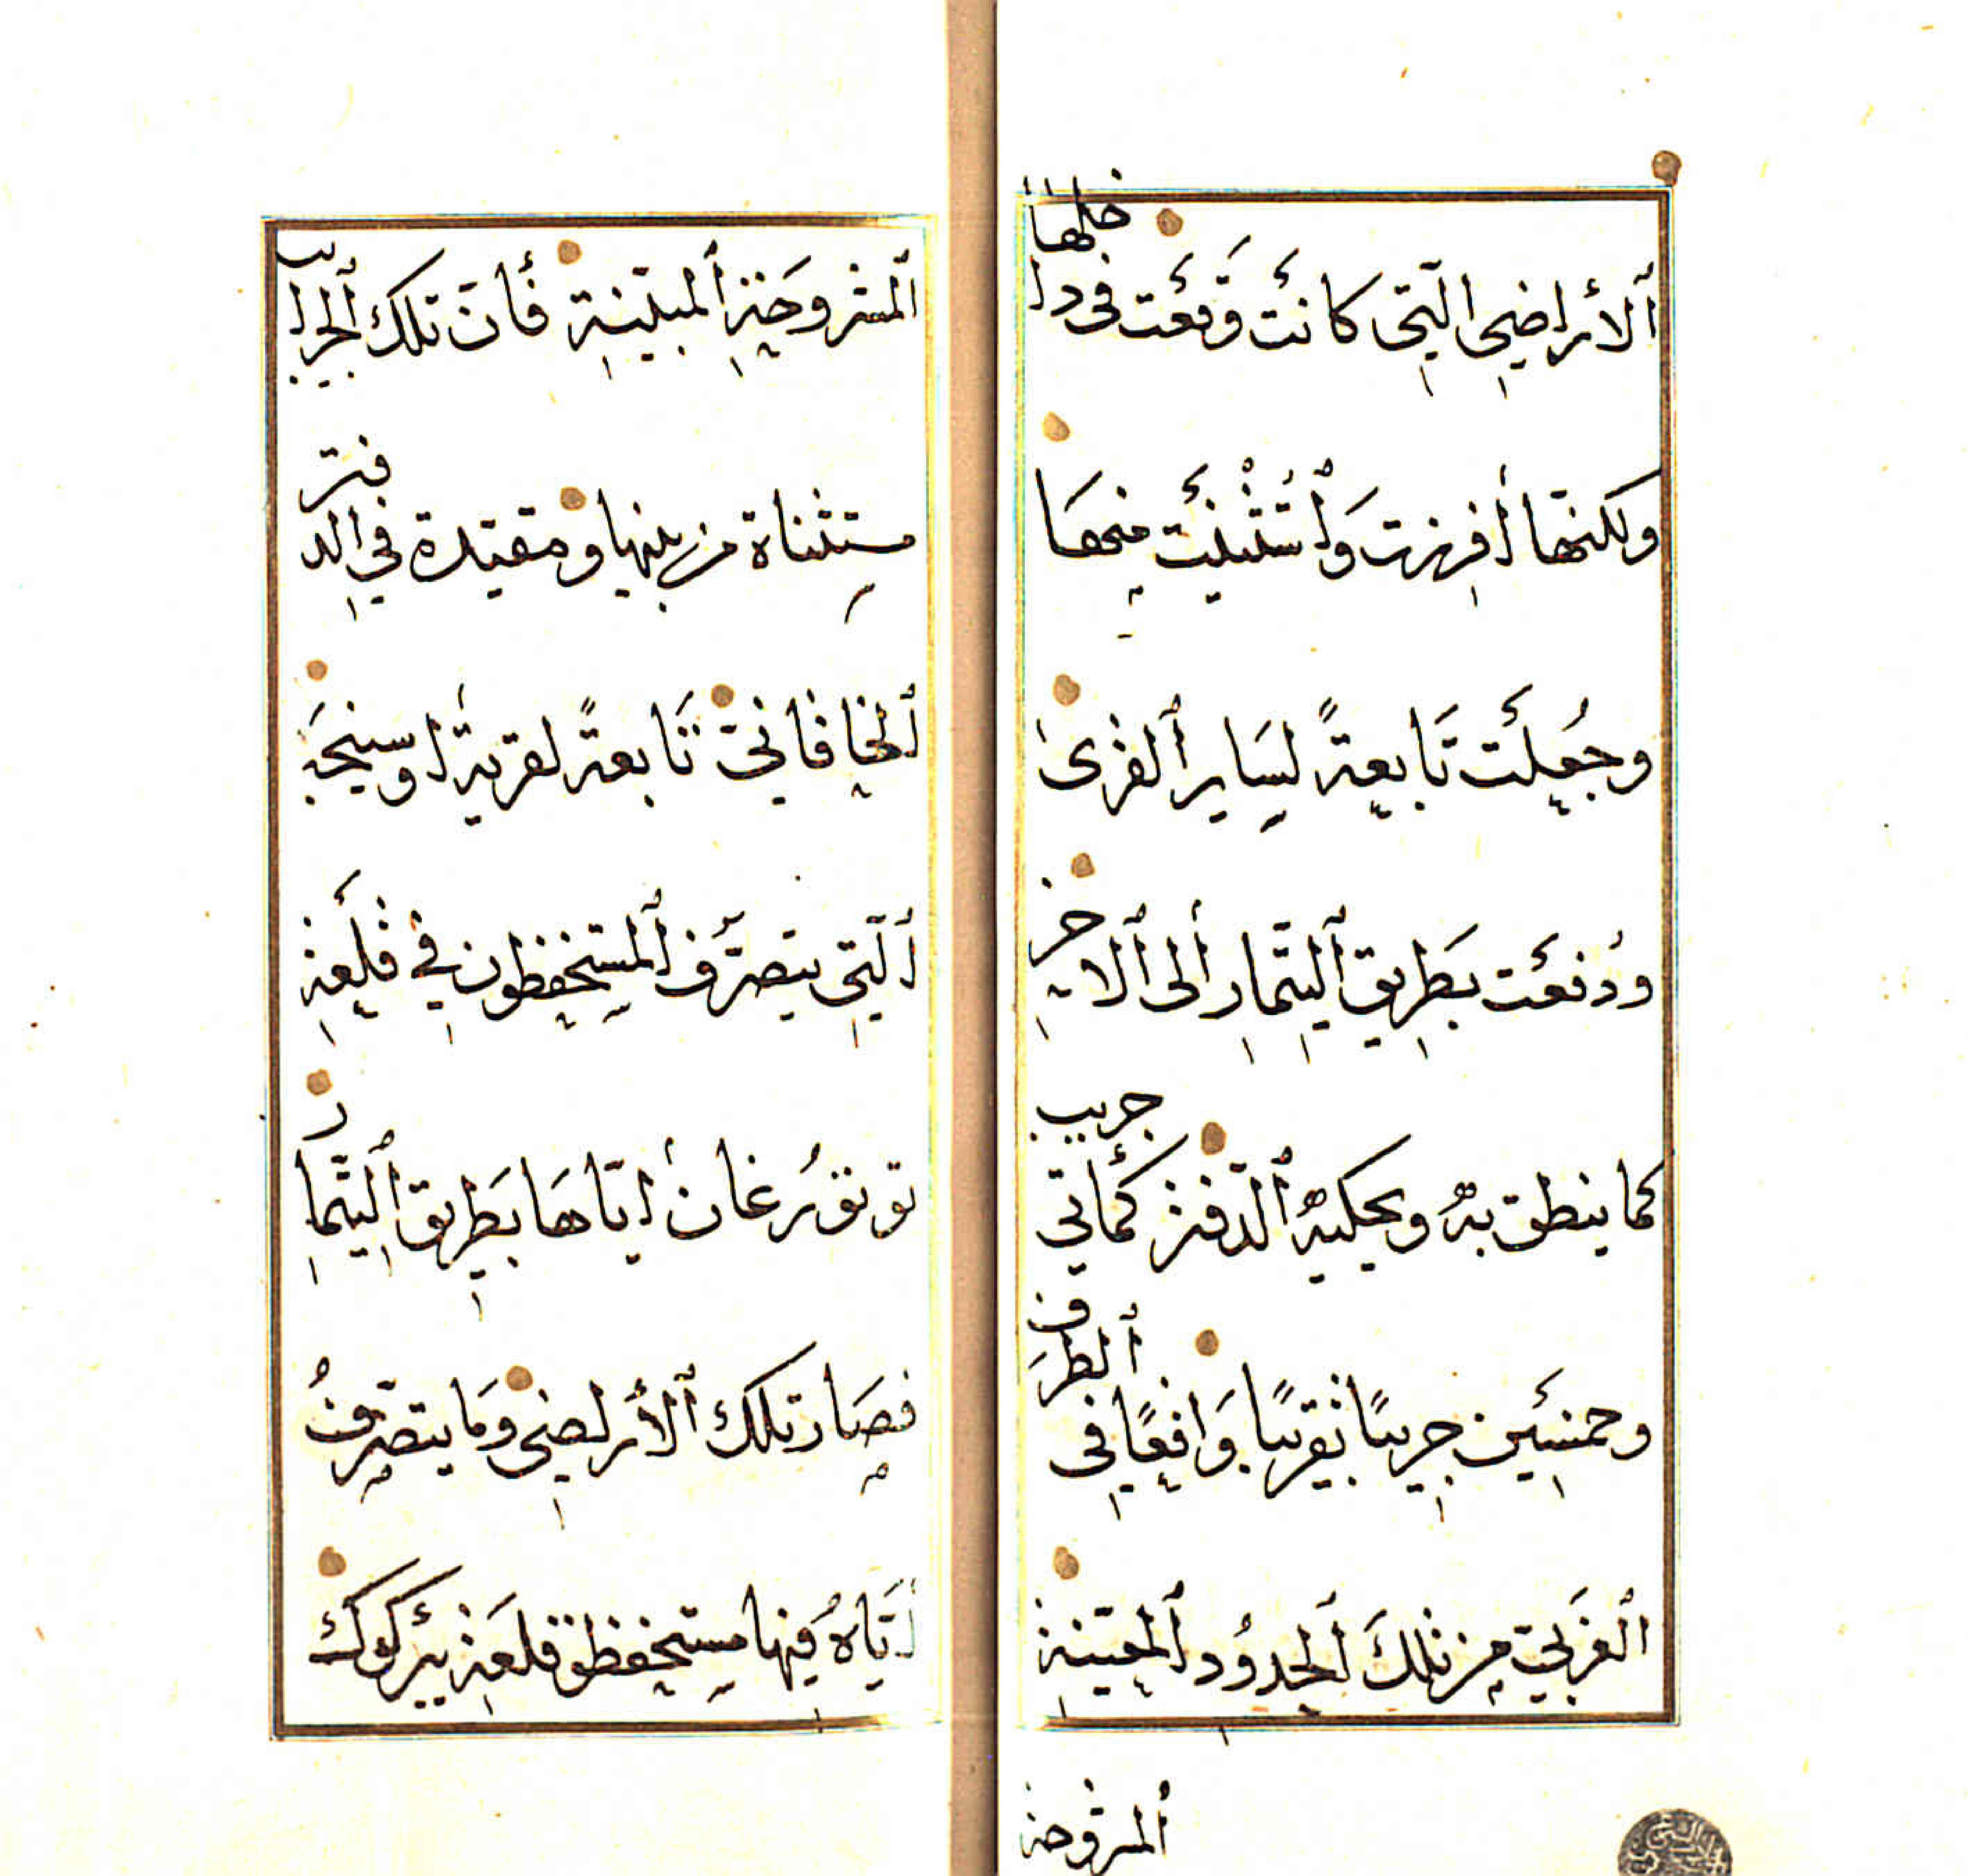 ٱلأراضي الَّتي كانَت وَقَعَت في داخلها
ولكنّها أفرزت وَٱستُثْنِيَت مِنهَا
وجُعِلَت تَابِعةً لِسَايِر ٱلقرىٰ
ودُفعَت بِطَرِيقِ ٱلتِّيمَارِ إلى ٱلآخر
كما ينطق بهُ ويحكيهُ ٱلدّفتر كمأتي جريب
وخمسِين جريبًا تقريبًا وَاقعًا في ٱلطرَف
ٱلغَربيّ مِن تلكَ ٱلحدُود ٱلمعيّنةِ
ٱلمشروحة
ٱلمشروحَةِ ٱلمبيّنةِ فأنّ تلك ٱلجرايب
مستثناة من بينها ومقيّدة في الدفتر
ٱلخاقانيّ تَابعةً لقرية اوسينجَه
ٱلّتي يتصرَّف ٱلمستحفظون في قلعَةِ
تويغُرغان إيّاهَا بطَرِيقِ ٱلتِّيمَار
فصَارَ تلك ٱلأرَاضي ومَا يتصرّفُ
إيّاهُ فيها مستحفظو قلعَةِ بيرَكوك